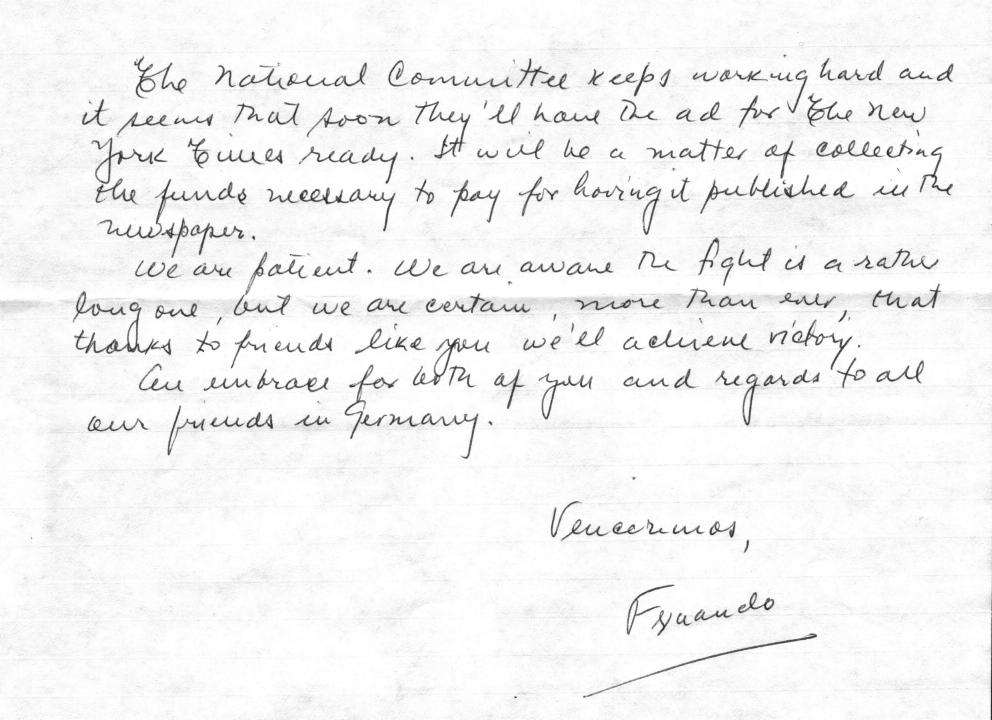 The National Committee keeps working hard and
it seems that soon they'll have the ad for The New
York Times ready. It will be a matter of collecting
the funds necessary to pay for having it published in the
newspaper.
We are patient. We are aware the fight is a rather
long one, but we are certain, more than ever, that
thanks to friends like you we'll achieve victory.
An embrace for both of you and regards to all
our friends in Germany.
Venceremos,
Fernando